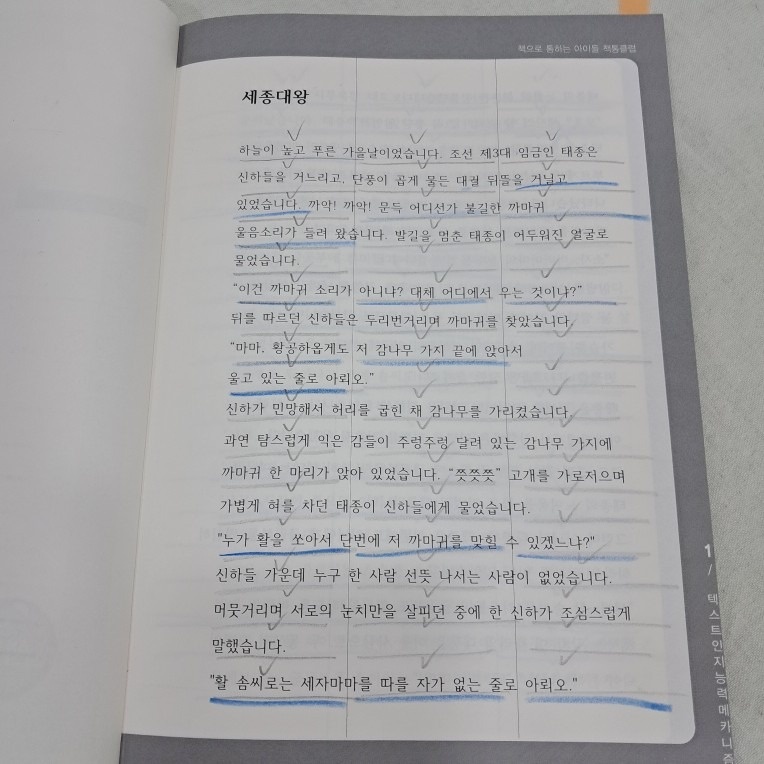 책으로 통하는 아이들 책통클럽
세종대왕
하늘이 높고 푸른 가을날이었습니다. 조선 제3대 임금인 태종은
신하들을 거느리고, 단풍이 곱게 물든 대궐 뒤뜰을 거닐고
있었습니다. 까악! 까악! 문득 어디선가 불길한 까마귀
울음소리가 들려 왔습니다. 발길을 멈춘 태종이 어두워진 얼굴로
물었습니다.
“이건 까마귀 소리가 아니냐? 대체 어디에서 우는 것이냐?”
뒤를 따르던 신하들은 두리번거리며 까마귀를 찾았습니다.
“마마, 황공하옵게도 저 감나무 가지 끝에 앉아서
울고 있는 줄로 아뢰오.”
신하가 민망해서 허리를 굽힌 채 감나무를 가리켰습니다.
과연 탐스럽게 익은 감들이 주렁주렁 달려 있는 감나무 가지에
까마귀 한 마리가 앉아 있었습니다. “쯧쯧쯧” 고개를 가로저으며
가볍게 혀를 차던 태종이 신하들에게 물었습니다.
"누가 활을 쏘아서 단번에 저 까마귀를 맞힐 수 있겠느냐?"
신하들 가운데 누구 한 사람 선뜻 나서는 사람이 없었습니다.
머뭇거리며 서로의 눈치만을 살피던 중에 한 신하가 조심스럽게
말했습니다.
"활 솜씨로는 세자마마를 따를 자가 없는 줄로 아뢰오."
1
/
텍스트인지능력메카니즘